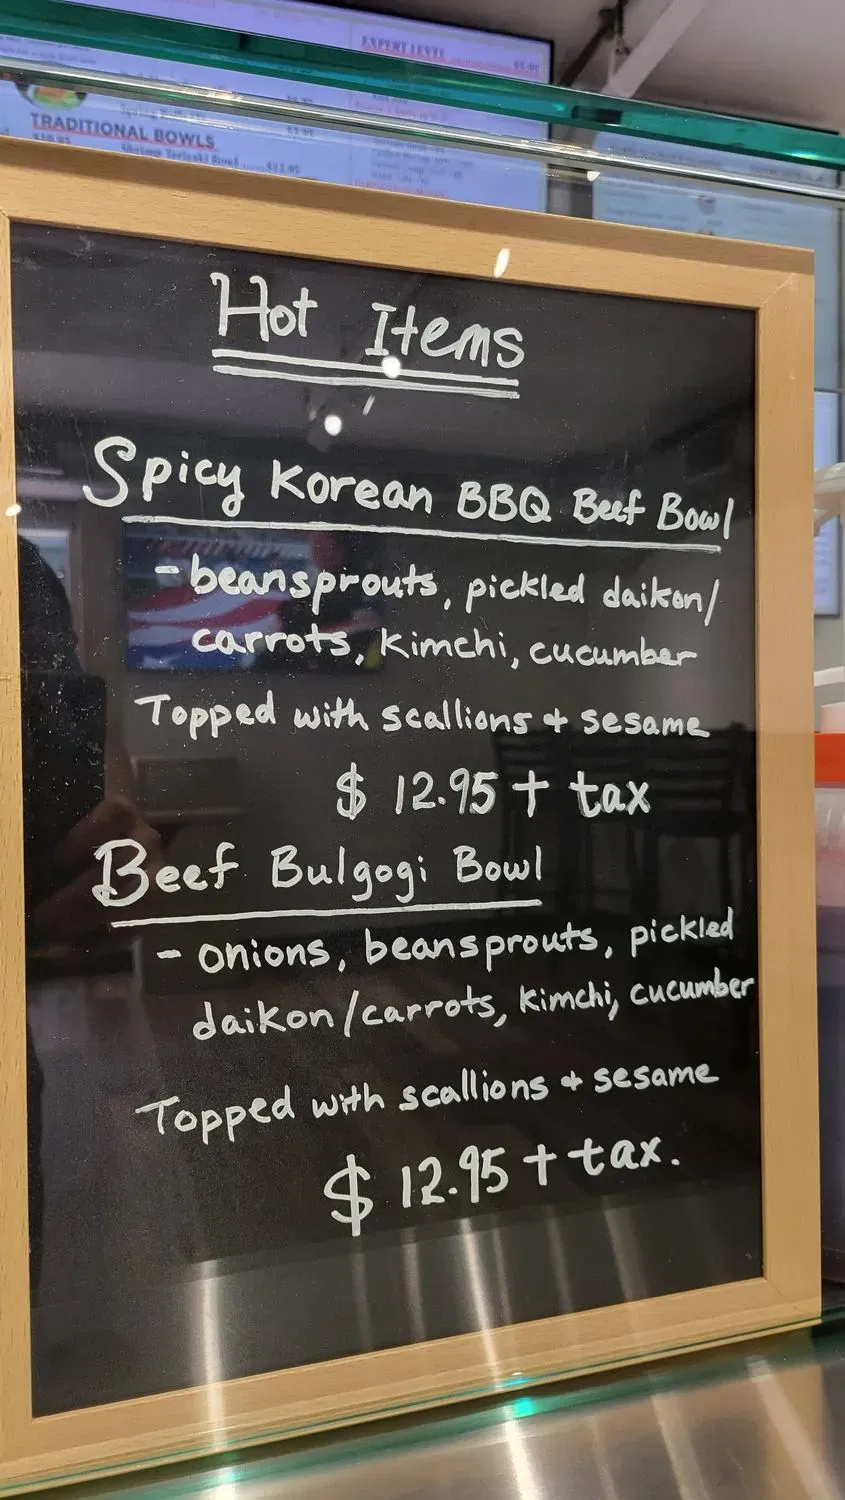 EXPERT LEVEL
TRADITIONAL BOWLS
Shrimp Teriyaki Bowl
Hot Items
Spicy Korean BBQ Beef Bowl
- beansprouts, pickled daikon/
carrots, kimchi, cucumber
Topped with scallions + sesame
$ 12.95 + tax
Beef Bulgogi Bowl
- onions, beansprouts, pickled
daikon/carrots, kimchi, cucumber
Topped with scallions + sesame
$ 12.95 + tax.